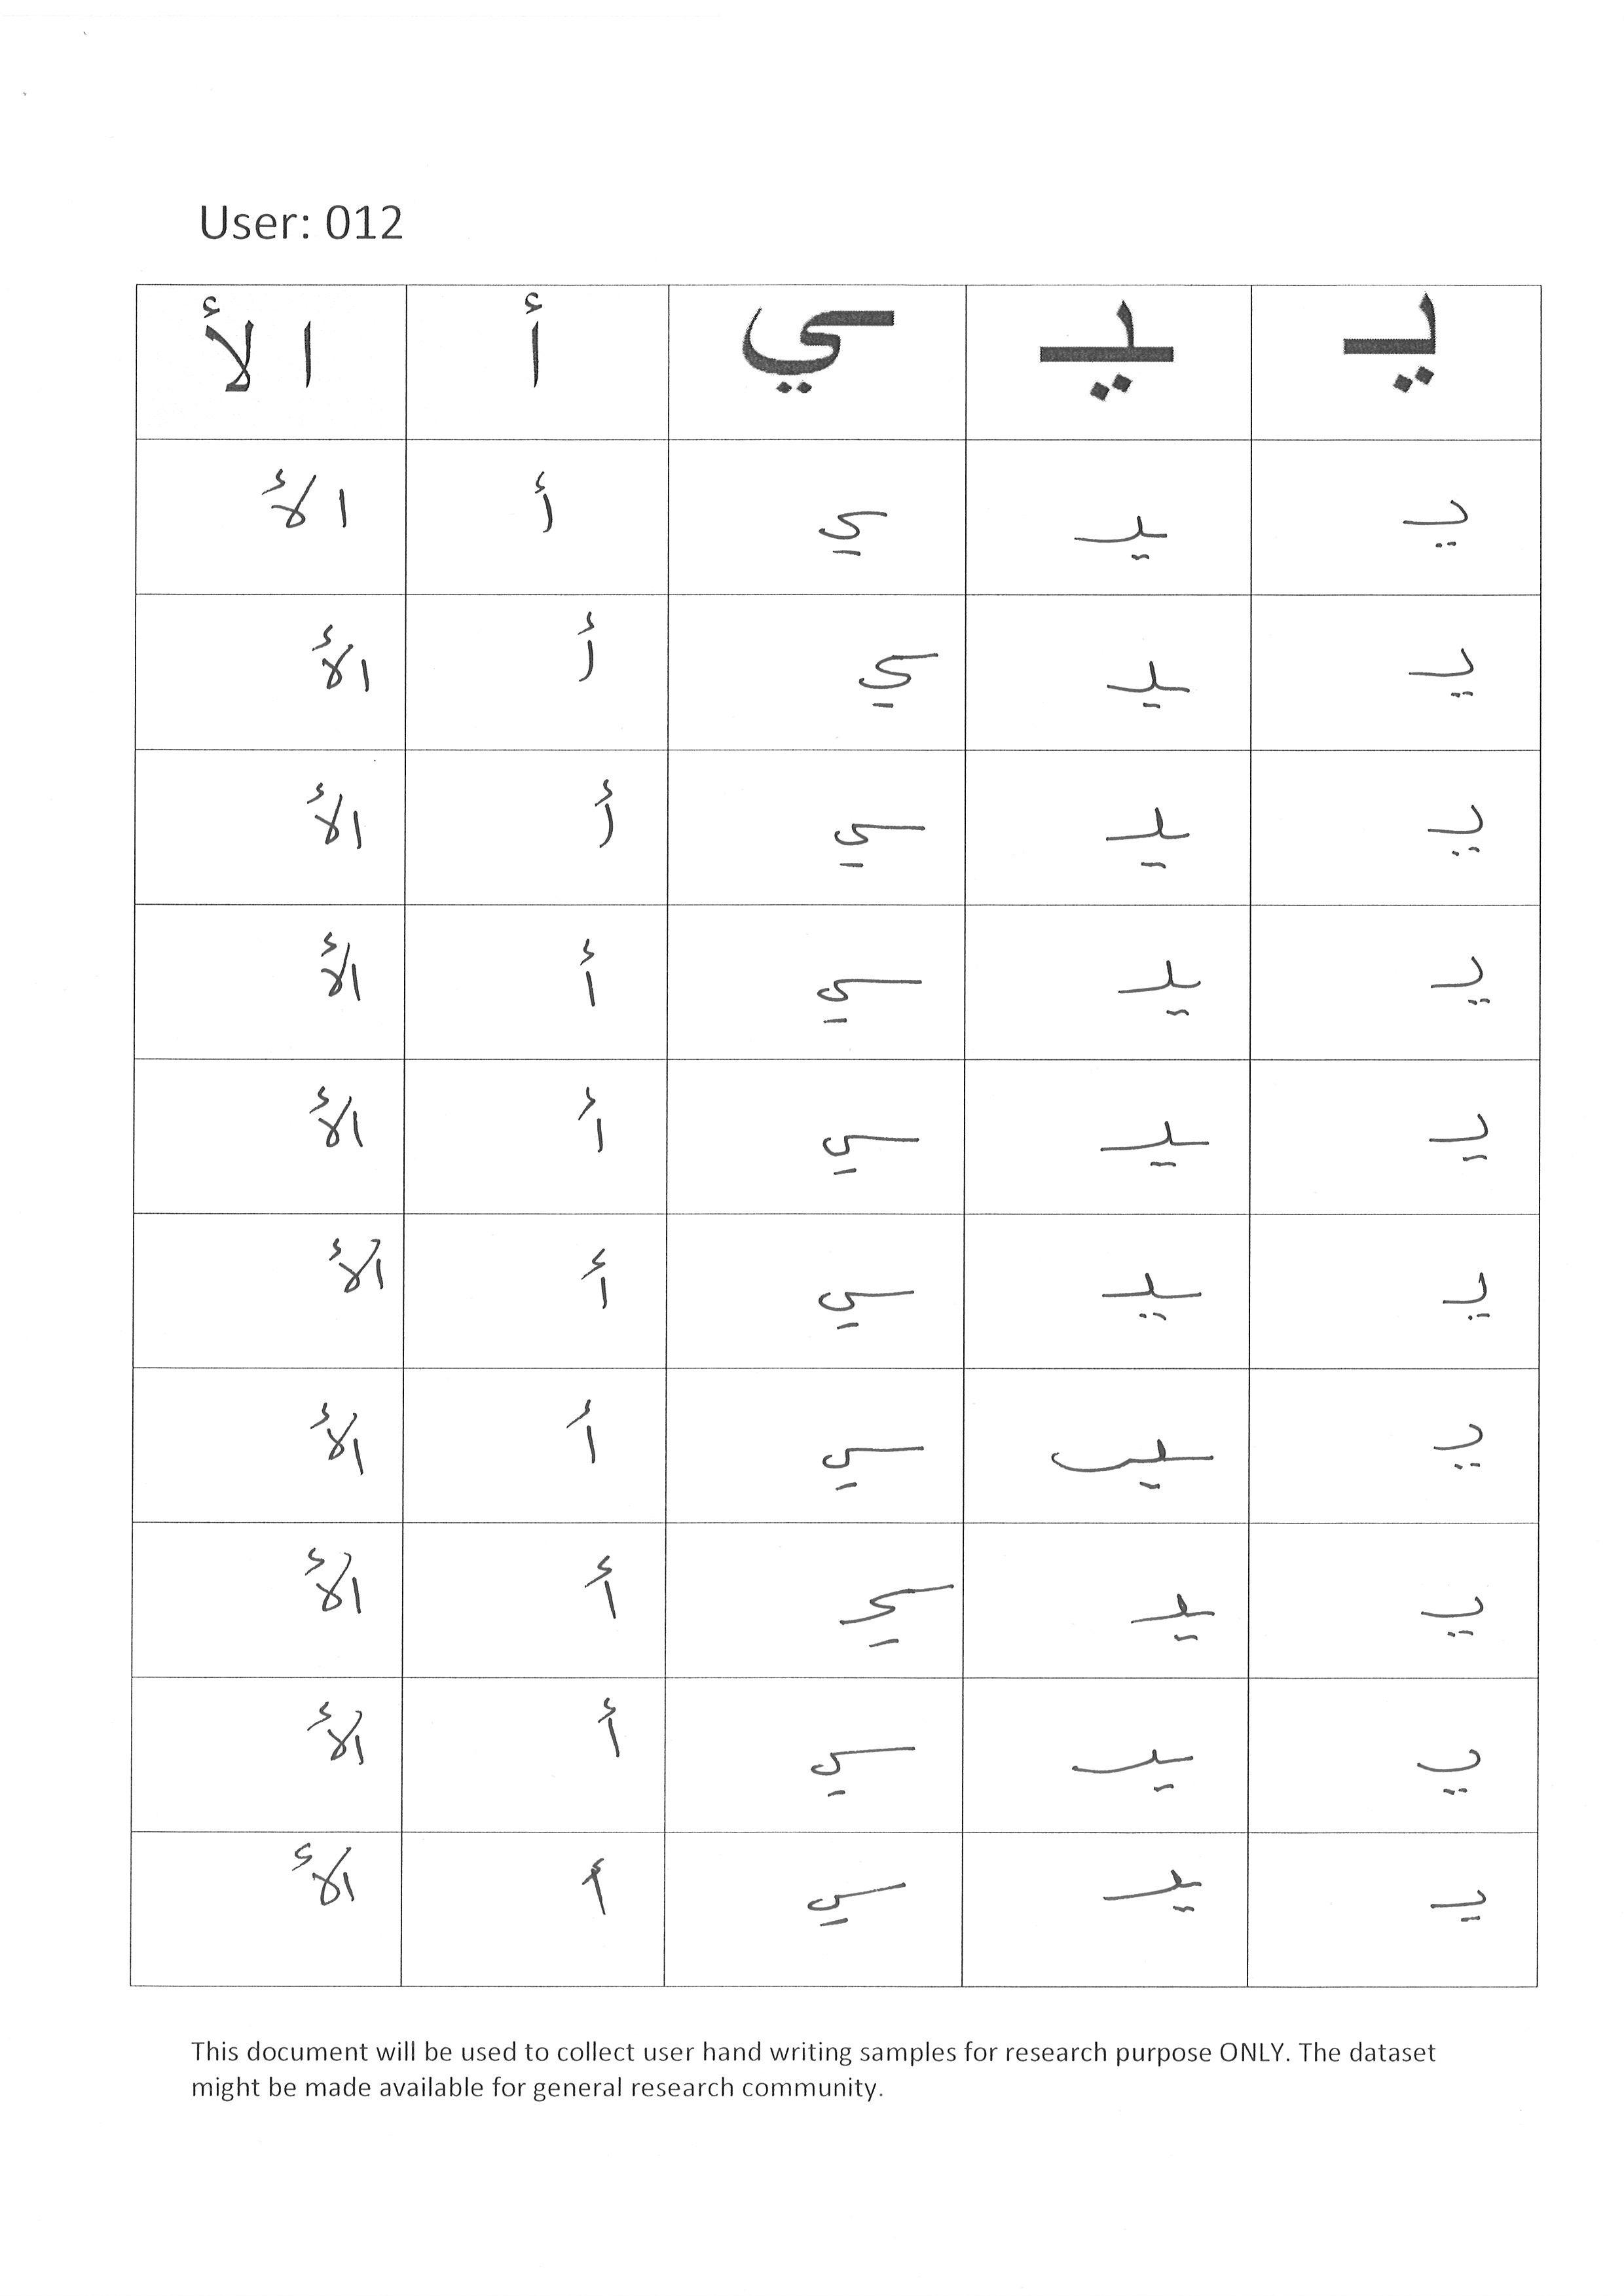 User: 012
يـ ـيـ ـي أ ا لأ
يـ ـيـ ـي أ ا لأ
يـ ـيـ ـي أ ا لأ
يـ ـيـ ـي أ ا لأ
يـ ـيـ ـي أ ا لأ
يـ ـيـ ـي أ ا لأ
يـ ـيـ ـي أ ا لأ
يـ ـيـ ـي أ ا لأ
يـ ـيـ ـي أ ا لأ
يـ ـيـ ـي أ ا لأ
يـ ـيـ ـي أ ا لأ
This document will be used to collect user hand writing samples for research purpose ONLY. The dataset
might be made available for general research community.